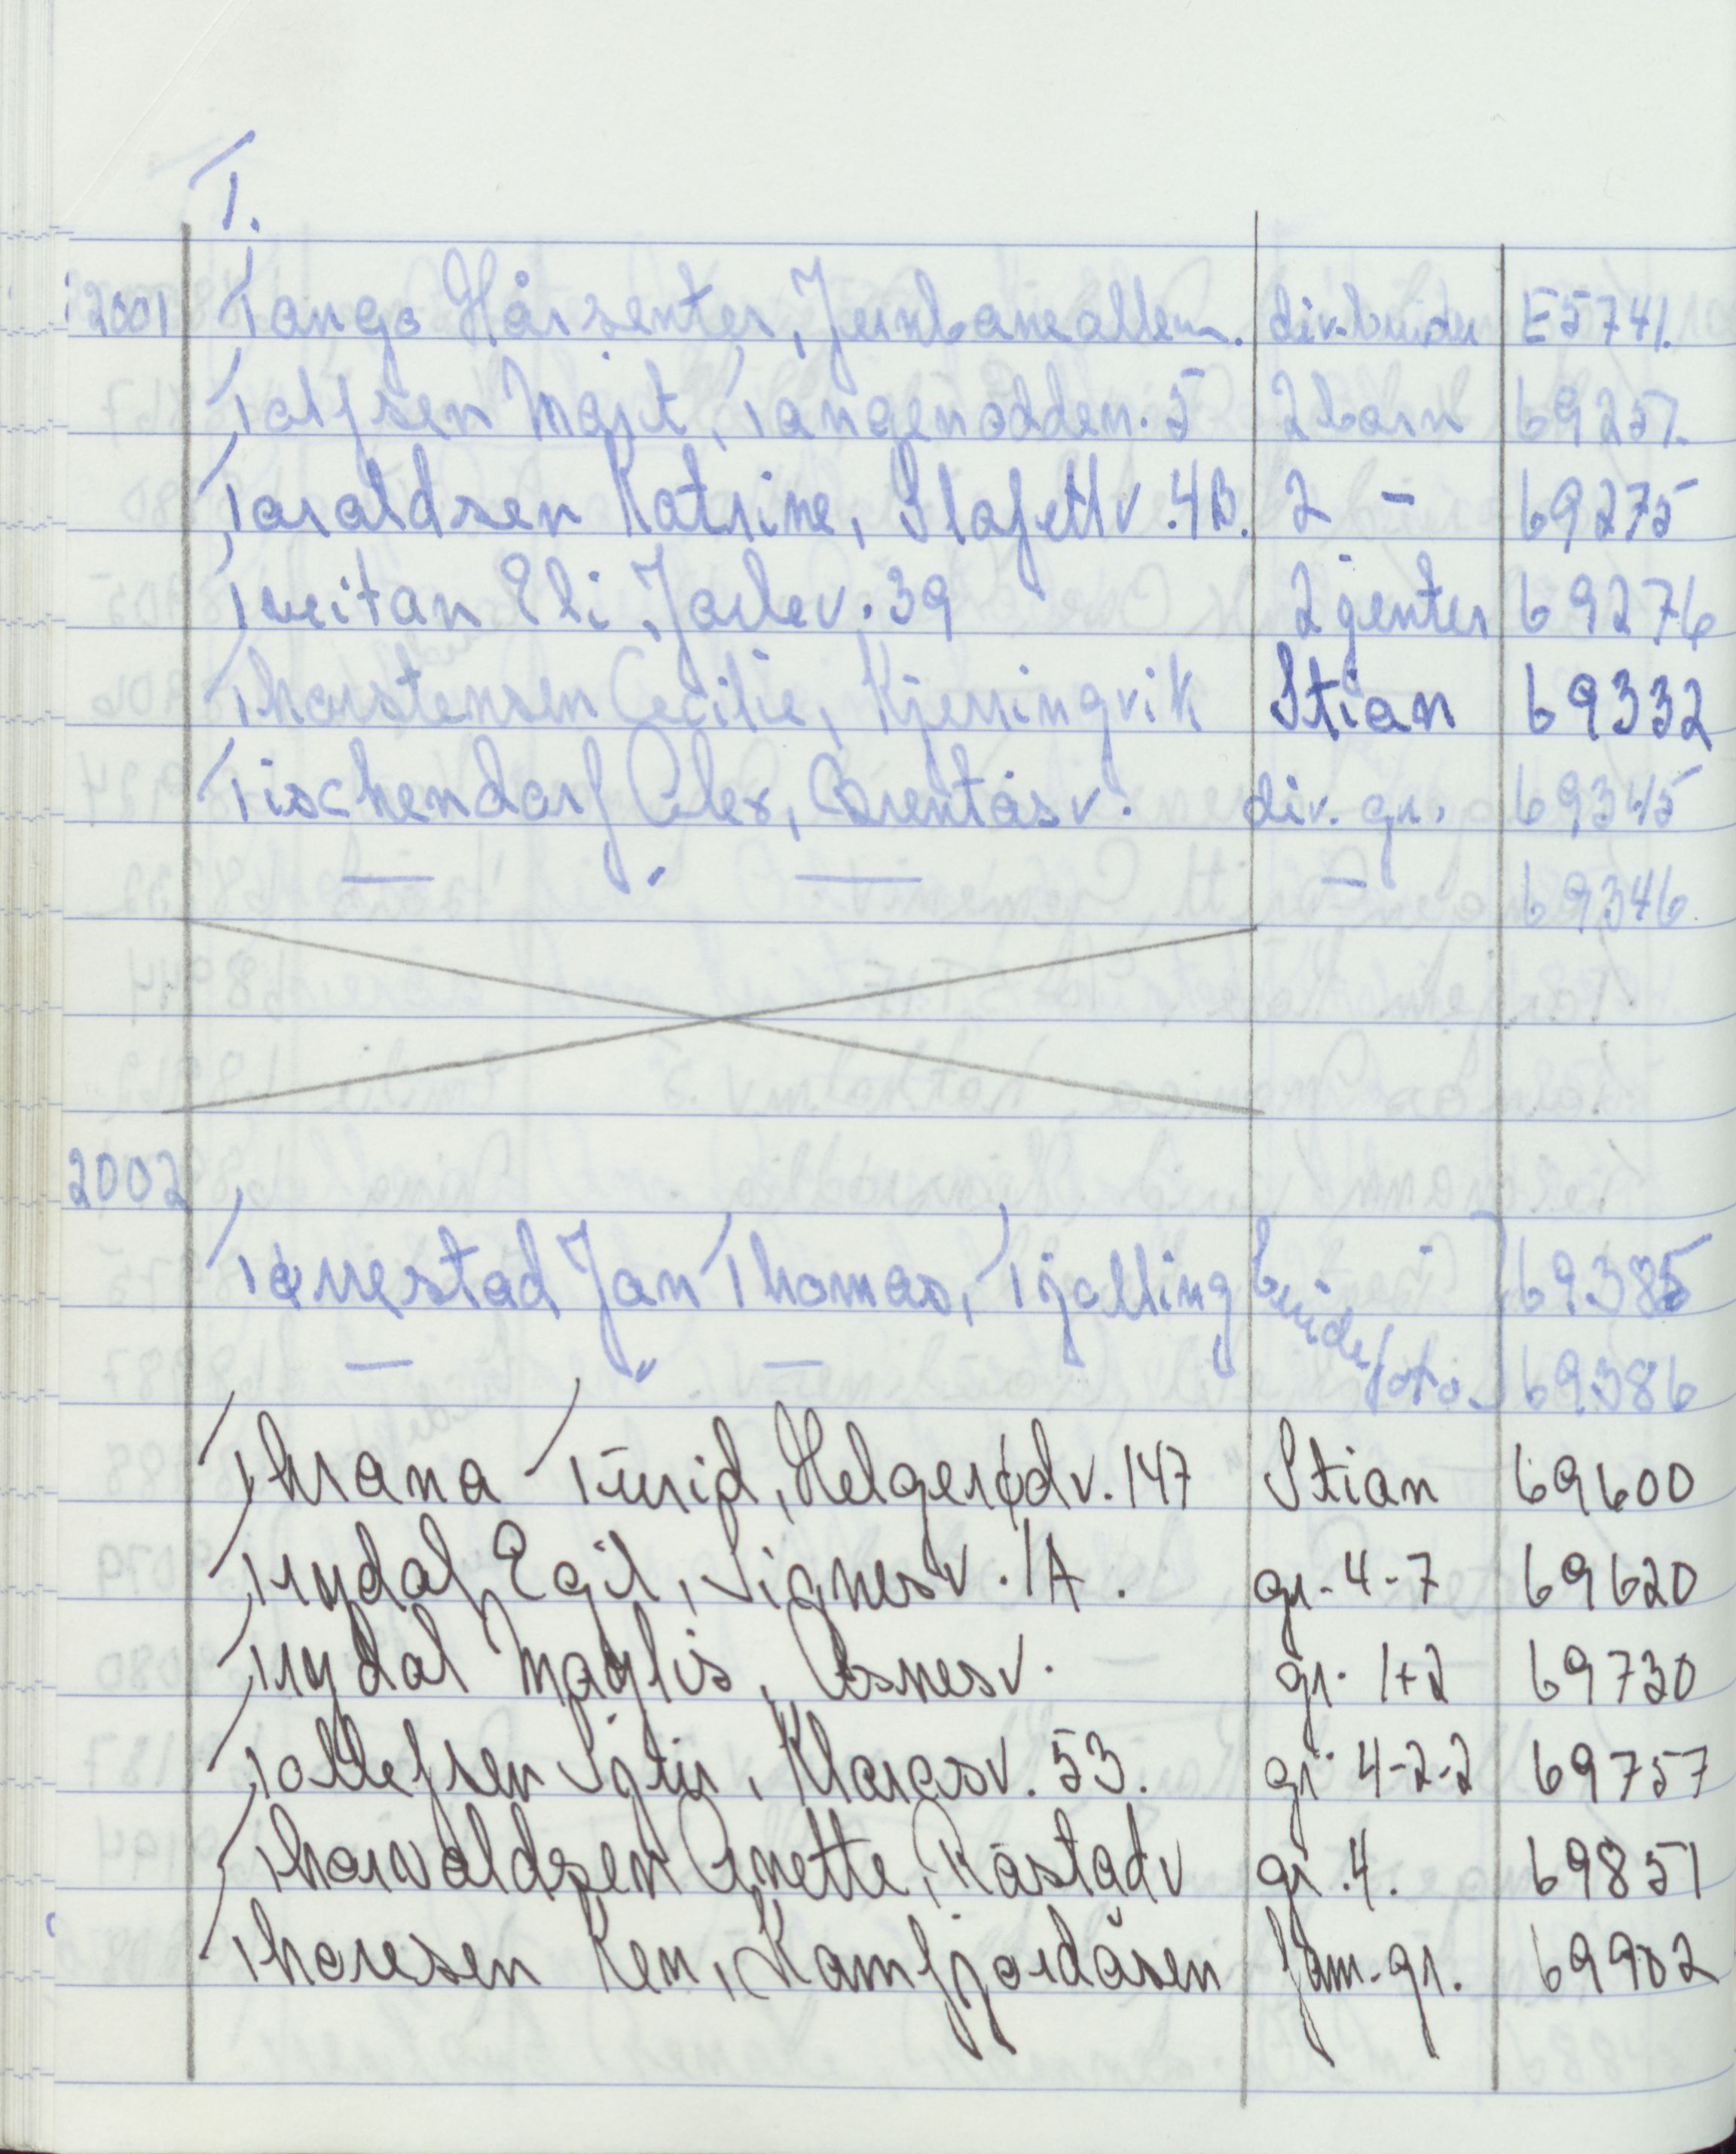 T.
2001 Tango Hårsenter, Jernbanealleen. div. bruder E5741.
Tolfsen Marit, Tangenodden. 5 2 barn 69257.
Taraldsen Katrine, Stafettv. 4B. 2 - 69275
Tveitan Eli, Jarlev. 39 2 jenter 69276
Thorstensen Cecilie, Kjerringvik Stian 69332
Tischendorf Alex, Brentåsv. div. gr. 69345
— " — - 69346
2002
Tørrestad Jan Thomas, Tjølling brude 69385
— " — foto. 69386
Thrana Turid, Helgerødv. 147 Stian 69600
Trydal Egil, Signesv. 1A. gr. 4-7 69620
Trydal Maylis, Åsnesv. gr. 1+2 69730
Tollefsen Sytir, Klarasv. 53. gr. 4-2-2 69757
Thorvaldsen Anette, Råstadv gr. 4. 69851
Thoresen Ken, Kamfjordåsen fam. gr. 69902